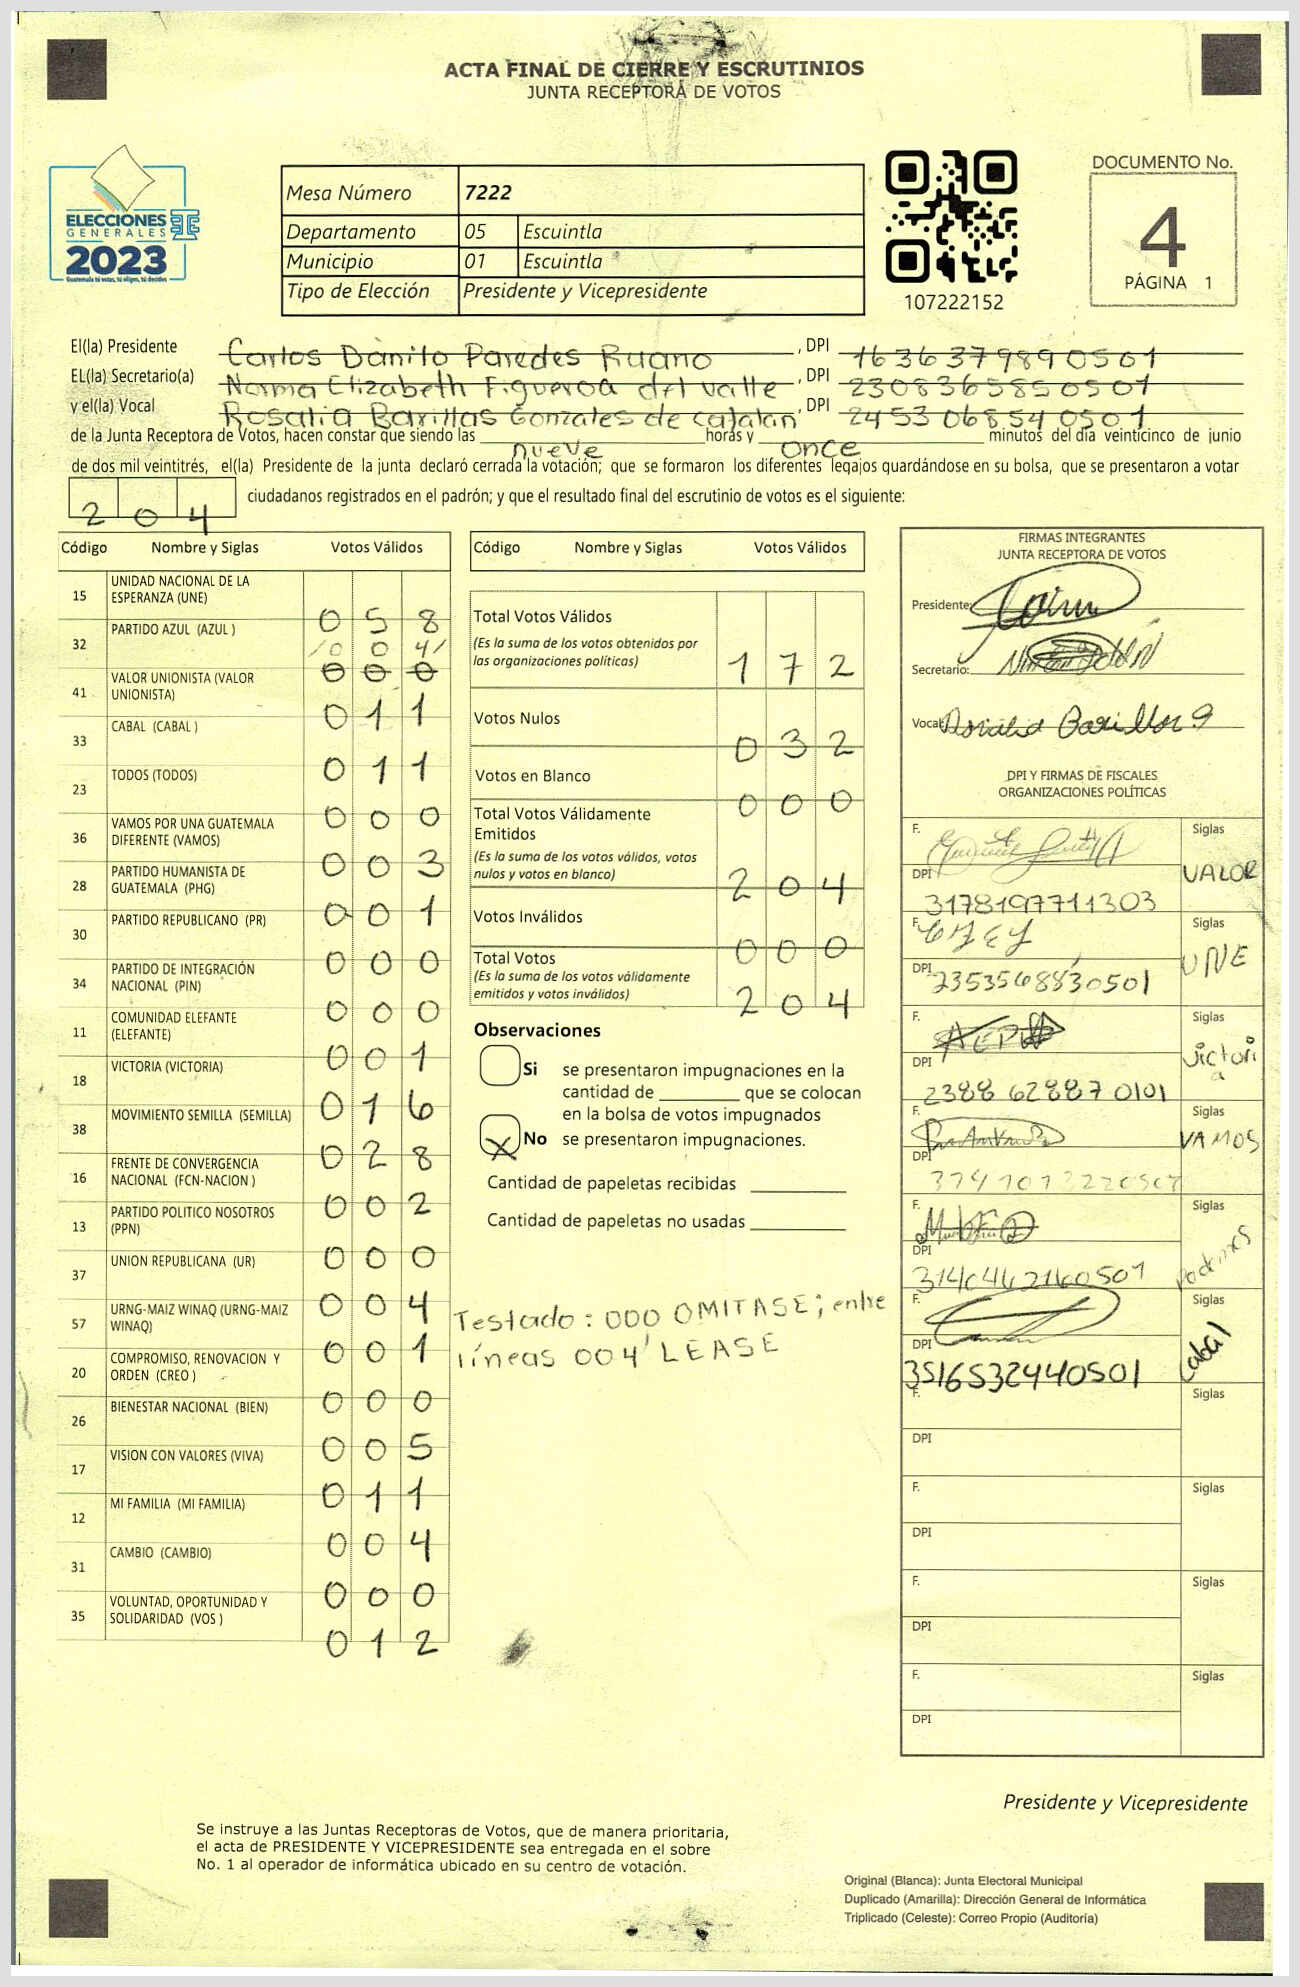 ACTA FINAL DE CIERRE Y ESCRUTINIOS
JUNTA RECEPTORA DE VOTOS
ELECCIONES
GENERALES
2023
Guatemala tú votas, tú eliges, tú decides
Mesa Número 7222
Departamento 05 Escuintla
Municipio 01 Escuintla
Tipo de Elección Presidente y Vicepresidente
107222152
DOCUMENTO No.
4
PÁGINA 1
El(la) Presidente Carlos Danilo Paredes Ruano, DPI 1636379890501
EL(la) Secretario(a) Norma Elizabeth Figueroa del valle, DPI 2308365850501
y el(la) Vocal Rosalia Barillas Gonzales de catalan, DPI 2453068540501
de la Junta Receptora de Votos, hacen constar que siendo las nueve horas y once minutos del día veinticinco de junio
de dos mil veintitrés, el(la) Presidente de la junta declaró cerrada la votación; que se formaron los diferentes legajos guardándose en su bolsa, que se presentaron a votar
204 ciudadanos registrados en el padrón; y que el resultado final del escrutinio de votos es el siguiente:
Código Nombre y Siglas Votos Válidos
15 UNIDAD NACIONAL DE LA ESPERANZA (UNE) 0 5 8
32 PARTIDO AZUL (AZUL ) /0 0 4/ 0 0 0
41 VALOR UNIONISTA (VALOR UNIONISTA) 0 1 1
33 CABAL (CABAL ) 0 1 1
23 TODOS (TODOS) 0 0 0
36 VAMOS POR UNA GUATEMALA DIFERENTE (VAMOS) 0 0 3
28 PARTIDO HUMANISTA DE GUATEMALA (PHG) 0 0 1
30 PARTIDO REPUBLICANO (PR) 0 0 0
34 PARTIDO DE INTEGRACIÓN NACIONAL (PIN) 0 0 0
11 COMUNIDAD ELEFANTE (ELEFANTE) 0 0 1
18 VICTORIA (VICTORIA) 0 1 6
38 MOVIMIENTO SEMILLA (SEMILLA) 0 2 8
16 FRENTE DE CONVERGENCIA NACIONAL (FCN-NACION ) 0 0 2
13 PARTIDO POLITICO NOSOTROS (PPN) 0 0 0
37 UNION REPUBLICANA (UR) 0 0 4
57 URNG-MAIZ WINAQ (URNG-MAIZ WINAQ) 0 0 1
20 COMPROMISO, RENOVACION Y ORDEN (CREO ) 0 0 0
26 BIENESTAR NACIONAL (BIEN) 0 0 5
17 VISION CON VALORES (VIVA) 0 1 1
12 MI FAMILIA (MI FAMILIA) 0 0 4
31 CAMBIO (CAMBIO) 0 0 0
35 VOLUNTAD, OPORTUNIDAD Y SOLIDARIDAD (VOS ) 0 1 2
Código Nombre y Siglas Votos Válidos
Total Votos Válidos
(Es la suma de los votos obtenidos por
las organizaciones políticas) 1 7 2
Votos Nulos 0 3 2
Votos en Blanco 0 0 0
Total Votos Válidamente
Emitidos
(Es la suma de los votos válidos, votos
nulos y votos en blanco) 2 0 4
Votos Inválidos 0 0 0
Total Votos
(Es la suma de los votos válidamente
emitidos y votos inválidos) 2 0 4
Observaciones
Si se presentaron impugnaciones en la
cantidad de ________ que se colocan
en la bolsa de votos impugnados
X No se presentaron impugnaciones.
Cantidad de papeletas recibidas
Cantidad de papeletas no usadas
Testado: 000 OMITASE; entre
líneas 004' LEASE
FIRMAS INTEGRANTES
JUNTA RECEPTORA DE VOTOS
Presidente:
Secretario:
Vocal:
DPI Y FIRMAS DE FISCALES
ORGANIZACIONES POLÍTICAS
F. Siglas
DPI 3178197711303 VALOR
F. Siglas
DPI 2353568830501 UNE
F. Siglas
DPI 2388628870101 Victoria
F. Siglas
DPI VAMOS
F. Siglas
DPI 3140462160501 Podemos
F. Siglas
DPI 3516532440501 Cabal
F. Siglas
DPI
F. Siglas
DPI
F. Siglas
DPI
F. Siglas
DPI
Presidente y Vicepresidente
Se instruye a las Juntas Receptoras de Votos, que de manera prioritaria,
el acta de PRESIDENTE Y VICEPRESIDENTE sea entregada en el sobre
No. 1 al operador de informática ubicado en su centro de votación.
Original (Blanca): Junta Electoral Municipal
Duplicado (Amarilla): Dirección General de Informática
Triplicado (Celeste): Correo Propio (Auditoría)